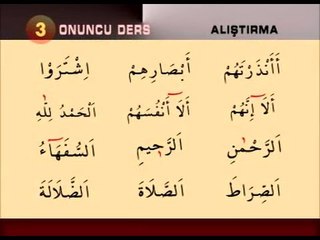 3 ONUNCU DERS ALIŞTIRMA
أَأَنْذَرْتَهُمْ أَبْصَارِهِمْ اِشْتَرَوُا
أَلَآ إِنَّهُمْ أَلَآ أَنْفُسَهُمْ اَلْحَمْدُ لِلّٰهِ
اَلرَّحْمٰنِ اَلرَّحِيمِ اَلسُّفَهَٓاءُ
اَلصِّرَاطَ اَلصَّلَاةَ اَلضَّلَالَةَ